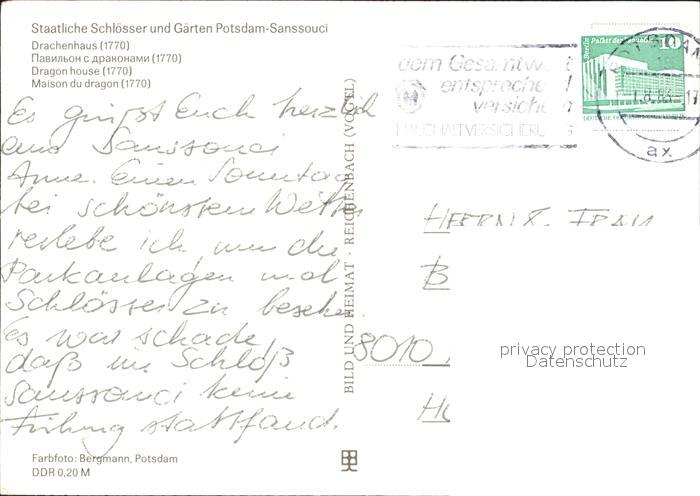 Staatliche Schlösser und Gärten Potsdam-Sanssouci
Drachenhaus (1770)
Павильон с драконами (1770)
Dragon house (1770)
Maison du dragon (1770)
Es grüßt Euch herzlich
aus Sanssouci
Anne. Einen Sonntag
bei schönstem Wetter
verlebe ich, um die
Parkanlagen und
Schlösser zu besehen.
Es war schade,
daß im Schloß
Sanssouci keine
Führung stattfand.
Farbfoto: Bergmann, Potsdam
DDR 0,20 M
BILD UND HEIMAT · REICHENBACH (VOGTL)
dem Gesamtwert
entsprechend
versichern
HAUSHALTVERSICHERUNG
Berlin Palast der Republik 10
ax
HERRN & FRAU
B
8010
privacy protection
Datenschutz